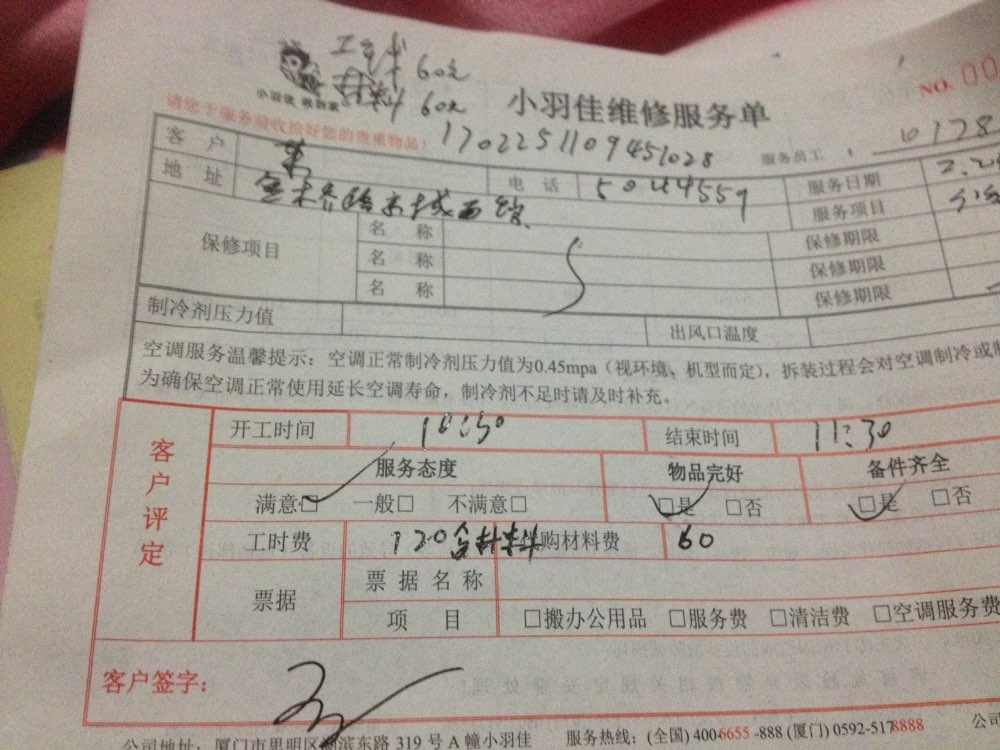 工钱 60元
材料 60元
小羽佳 做到家
小羽佳维修服务单
NO. 00
请您于服务前收拾好您的贵重物品！
170225110945 1028
服务员工： 10178
客 户
电 话 5044559 服务日期 2.2
地 址 服务项目
保修项目
名 称 保修期限
名 称 保修期限
名 称 保修期限
制冷剂压力值 出风口温度
空调服务温馨提示：空调正常制冷剂压力值为0.45mpa（视环境、机型而定），拆装过程会对空调制冷或制
为确保空调正常使用延长空调寿命，制冷剂不足时请及时补充。
客户评定
开工时间 10:50 结束时间 11:30
服务态度 物品完好 备件齐全
满意□ 一般□ 不满意□ □是 □否 □是 □否
工时费 120含材料 代购材料费 60
票据 票 据 名 称
项 目 □搬办公用品 □服务费 □清洁费 □空调服务费
客户签字：
公司地址：厦门市思明区湖滨东路 319 号 A 幢小羽佳 服务热线：(全国) 4006655 -888 (厦门) 0592-5178888 公司